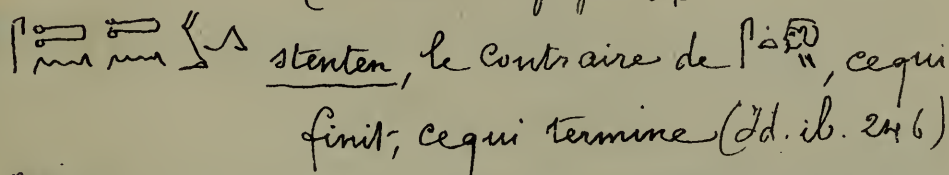 stenten, le contraire de , ce qui
finit, ce qui termine (Id. ib. 246)